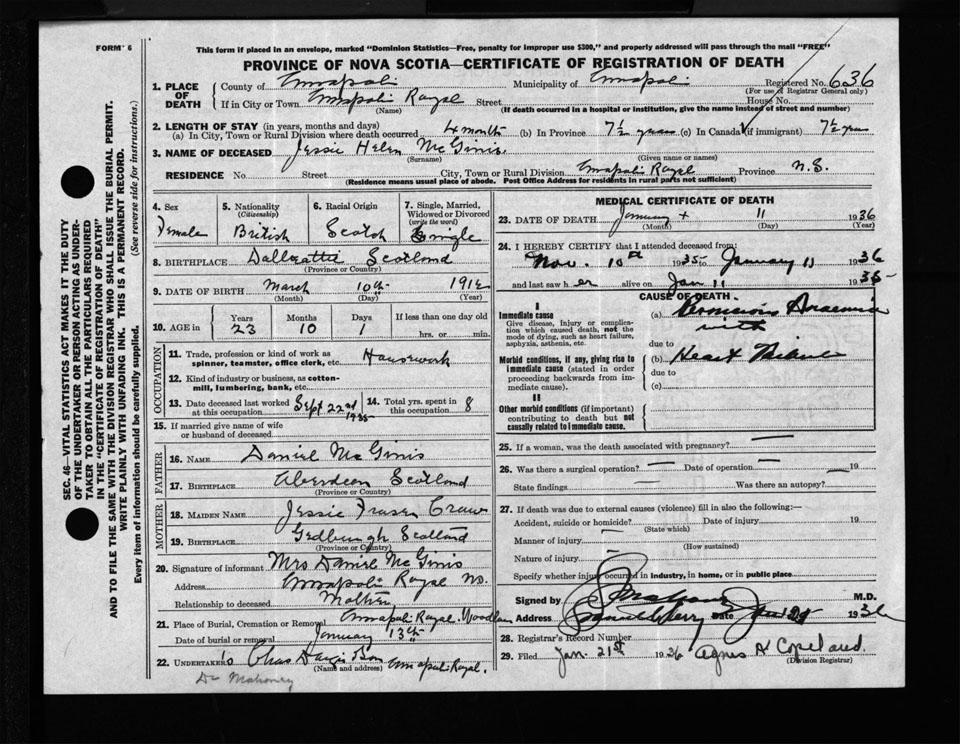 FORM 6
This form if placed in an envelope, marked "Dominion Statistics—Free, penalty for improper use $300," and properly addressed will pass through the mail "FREE"
PROVINCE OF NOVA SCOTIA—CERTIFICATE OF REGISTRATION OF DEATH
SEC. 46—VITAL STATISTICS ACT MAKES IT THE DUTY
OF THE UNDERTAKER OR PERSON ACTING AS UNDER-
TAKER TO OBTAIN ALL THE PARTICULARS REQUIRED
IN THE "CERTIFICATE OF REGISTRATION OF DEATH"
AND TO FILE THE SAME WITH THE DIVISION REGISTRAR WHO SHALL ISSUE THE BURIAL PERMIT.
WRITE PLAINLY WITH UNFADING INK. THIS IS A PERMANENT RECORD.
Every item of information should be carefully supplied. (See reverse side for instructions.)
1. PLACE OF DEATH County of Annapolis Municipality of Annapolis Registered No. 636
(For use of Registrar General only)
If in City or Town Annapolis Royal Street House No.
(Name) (If death occurred in a hospital or institution, give the name instead of street and number)
2. LENGTH OF STAY (in years, months and days)
(a) In City, Town or Rural Division where death occurred 4 months (b) In Province 7½ years (c) In Canada (if immigrant) 7½ years
3. NAME OF DECEASED Jessie Helen McGinis
(Surname) (Given name or names)
RESIDENCE No. Street City, Town or Rural Division Annapolis Royal Province N.S.
(Residence means usual place of abode. Post Office Address for residents in rural parts not sufficient)
4. Sex 5. Nationality (Citizenship) 6. Racial Origin 7. Single, Married, Widowed or Divorced (write the word)
Female British Scotch Single
8. BIRTHPLACE Dalbeattie Scotland
(Province or Country)
9. DATE OF BIRTH March 10th 1912
(Month) (Day) (Year)
10. AGE in Years Months Days If less than one day old
23 10 1 hrs. or min.
OCCUPATION
11. Trade, profession or kind of work as spinner, teamster, office clerk, etc. Housework
12. Kind of industry or business, as cotton-mill, lumbering, bank, etc.
13. Date deceased last worked at this occupation Sept 22nd 1935 14. Total yrs. spent in this occupation 8
15. If married give name of wife or husband of deceased
FATHER
16. NAME Daniel McGinis
17. BIRTHPLACE Aberdeen Scotland
(Province or Country)
MOTHER
18. MAIDEN NAME Jessie Fraser
19. BIRTHPLACE Scotland
(Province or Country)
20. Signature of informant Mrs Daniel McGinis
Address Annapolis Royal NS.
Relationship to deceased Mother
21. Place of Burial, Cremation or Removal Annapolis Royal. Woodlawn
Date of burial or removal January 13th
22. UNDERTAKER'S Chas Annapolis Royal.
(Name and address)
Dr Mahoney
MEDICAL CERTIFICATE OF DEATH
23. DATE OF DEATH January 11 1936
(Month) (Day) (Year)
24. I HEREBY CERTIFY that I attended deceased from:
Nov. 10th 1935 to January 11 1936
and last saw her alive on Jan 11 1935
CAUSE OF DEATH
I
Immediate cause
Give disease, injury or complication which caused death, not the mode of dying, such as heart failure, asphyxia, asthenia, etc.
(a) Pernicious Anaemia
with
due to
Morbid conditions, if any, giving rise to immediate cause (stated in order proceeding backwards from immediate cause).
(b) Heart Failure
due to
(c)
II
Other morbid conditions (if important) contributing to death but not causally related to immediate cause.
25. If a woman, was the death associated with pregnancy?
26. Was there a surgical operation? Date of operation 19
State findings Was there an autopsy?
27. If death was due to external causes (violence) fill in also the following:—
Accident, suicide or homicide? Date of injury 19
(State which)
Manner of injury
(How sustained)
Nature of injury
Specify whether injury occurred in industry, in home, or in public place
Signed by M.D.
Address Date Jan 1936
28. Registrar's Record Number
29. Filed Jan. 21st 1936 Agnes A Copeland.
(Division Registrar)